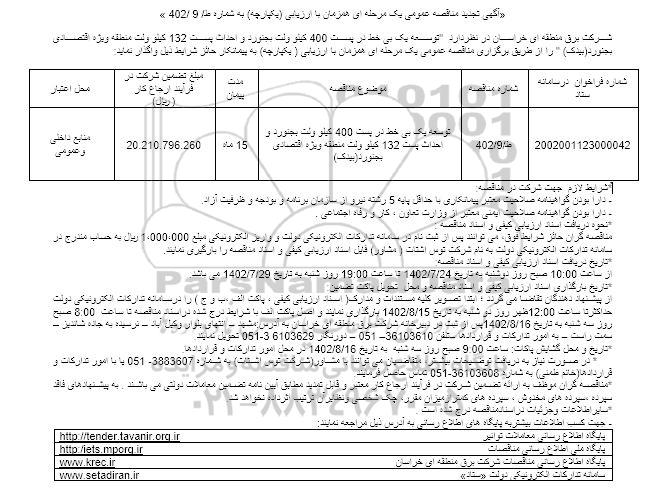 «آگهی تجدید مناقصه عمومی یک مرحله ای همزمان با ارزیابی (یکپارچه) به شماره ط/ 9 /402 »
شــرکت برق منطقه ای خراســان در نظردارد "توســعه یک بی خط در پســت 400 کیلو ولت بجنورد و احداث پســت 132 کیلو ولت منطقه ویژه اقتصــادی
بجنورد(بیدک) " را از طریق برگزاری مناقصه عمومی یک مرحله ای همزمان با ارزیابی ( یکپارچه) به پیمانکار حائز شرایط ذیل واگذار نماید:
شماره فراخوان درسامانه ستاد
شماره مناقصه
موضوع مناقصه
مدت پیمان
مبلغ تضمین شرکت در فرآیند ارجاع کار (ریال)
محل اعتبار
2002001123000042
ط/402/9
توسعه یک بی خط در پست 400 کیلو ولت بجنورد و احداث پست 132 کیلو ولت منطقه ویژه اقتصادی بجنورد(بیدک)
15 ماه
20.210.796.260
منابع داخلی وعمومی
*شرایط لازم جهت شرکت در مناقصه:
- دارا بودن گواهینامه صلاحیت معتبر پیمانکاری با حداقل پایه 5 رشته نیرو از سازمان برنامه و بودجه و ظرفیت آزاد.
- دارا بودن گواهینامه صلاحیت ایمنی معتبر از وزارت تعاون ، کار و رفاه اجتماعی .
*نحوه دریافت اسناد ارزیابی کیفی و اسناد مناقصه :
مناقصه گران حائز شرایط فوق، می توانند پس از ثبت نام در سامانه تدارکات الکترونیکی دولت و واریز الکترونیکی مبلغ 1.000.000 ریال به حساب مندرج در
سامانه تدارکات الکترونیکی دولت به نام شرکت توس اشتات ( مشاور) فایل اسناد ارزیابی کیفی و اسناد مناقصه را بارگیری نمایند.
*تاریخ دریافت اسناد ارزیابی کیفی و اسناد مناقصه:
از ساعت 10:00 صبح روز دوشنبه به تاریخ 1402/7/24 تا ساعت 19:00 روز شنبه به تاریخ 1402/7/29 می باشد.
*تاریخ بارگذاری اسناد ارزیابی کیفی و اسناد مناقصه و محل تحویل پاکت تضمین :
از پیشنهاد دهندگان تقاضا می گردد ؛ ابتدا تصویر کلیه مستندات و مدارک( اسناد ارزیابی کیفی ، پاکت الف ،ب و ج ) را درسامانه تدارکات الکترونیکی دولت
حداکثرتا ساعت 12:00ظهر روز دو شنبه به تاریخ 1402/8/15 بارگذاری نمایند و اصل پاکت الف با شرایط درج شده دراسناد مناقصه تا ساعت 8:00 صبح
روز سه شنبه به تاریخ 1402/8/16پس از ثبت در دبیرخانه شرکت برق منطقه ای خراسان به آدرس:مشهد – انتهای بلوار وکیل آباد – نرسیده به جاده شاندیز –
سمت راست – به امور تدارکات و قراردادها،تلفن 36103610– 051 – دورنگار 6103629 3-051 تحویل نمایند.
*تاریخ و محل گشایش پاکات: ساعت 9:00 صبح روز سه شنبه به تاریخ 1402/8/16 در محل امور تدارکات و قراردادها
* در صورت نیاز به دریافت توضیحات بیشتر، متقاضیان می توانند با مشاور(شرکت توس اشتات) به شماره 3883607- 051 یا با امور تدارکات و
قراردادها(خانم طلعتی) به شماره 36103608-051 تماس حاصل فرمایند.
*مناقصه گران موظف به ارائه تضمین شرکت در فرآیند ارجاع کار معتبر و قابل تمدید مطابق آیین نامه تضمین معاملات دولتی می باشند . به پیشنهادهای فاقد
سپرده ،سپرده های مخدوش ، سپرده های کمترازمیزان مقرر، چک شخصی ونظایرآن ترتیب اثرداده نخواهد شد.
*سایراطلاعات وجزئیات دراسنادمناقصه درج شده است .
- جهت کسب اطلاعات بیشتربه پایگاه های اطلاع رسانی به آدرس ذیل مراجعه نمایند:
پایگاه اطلاع رسانی معاملات توانیر http://tender.tavanir.org.ir
پایگاه ملی اطلاع رسانی مناقصات http:/iets.mporg.ir
پایگاه اطلاع رسانی مناقصات شرکت برق منطقه ای خراسان www.krec.ir
سامانه تدارکات الکترونیکی دولت «ستاد» www.setadiran.ir